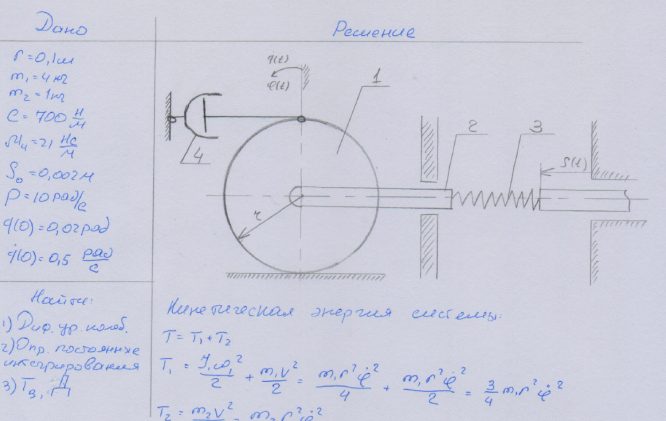 Дано
Решение
r=0,1м
m₁=4кг
m₂=1кг
C=700 Н/м
μ₄=21 Нс/м
S₀=0,002м
p=10 рад/с
q(0)=0,02рад
q̇(0)=0,5 рад/с
q(t)
φ(t)
1
2
3
4
S(t)
r
Найти:
1) Диф. ур. колеб.
2) Опр. постоянные
интегрирования
3) Tв,
Кинетическая энергия системы:
T = T₁+T₂
T₁ = J₁ω₁²/2 + m₁V²/2 = m₁r²φ̇²/4 + m₁r²φ̇²/2 = 3/4 m₁r²φ̇²
T₂ = m₂V²/2 = m₂r²φ̇²